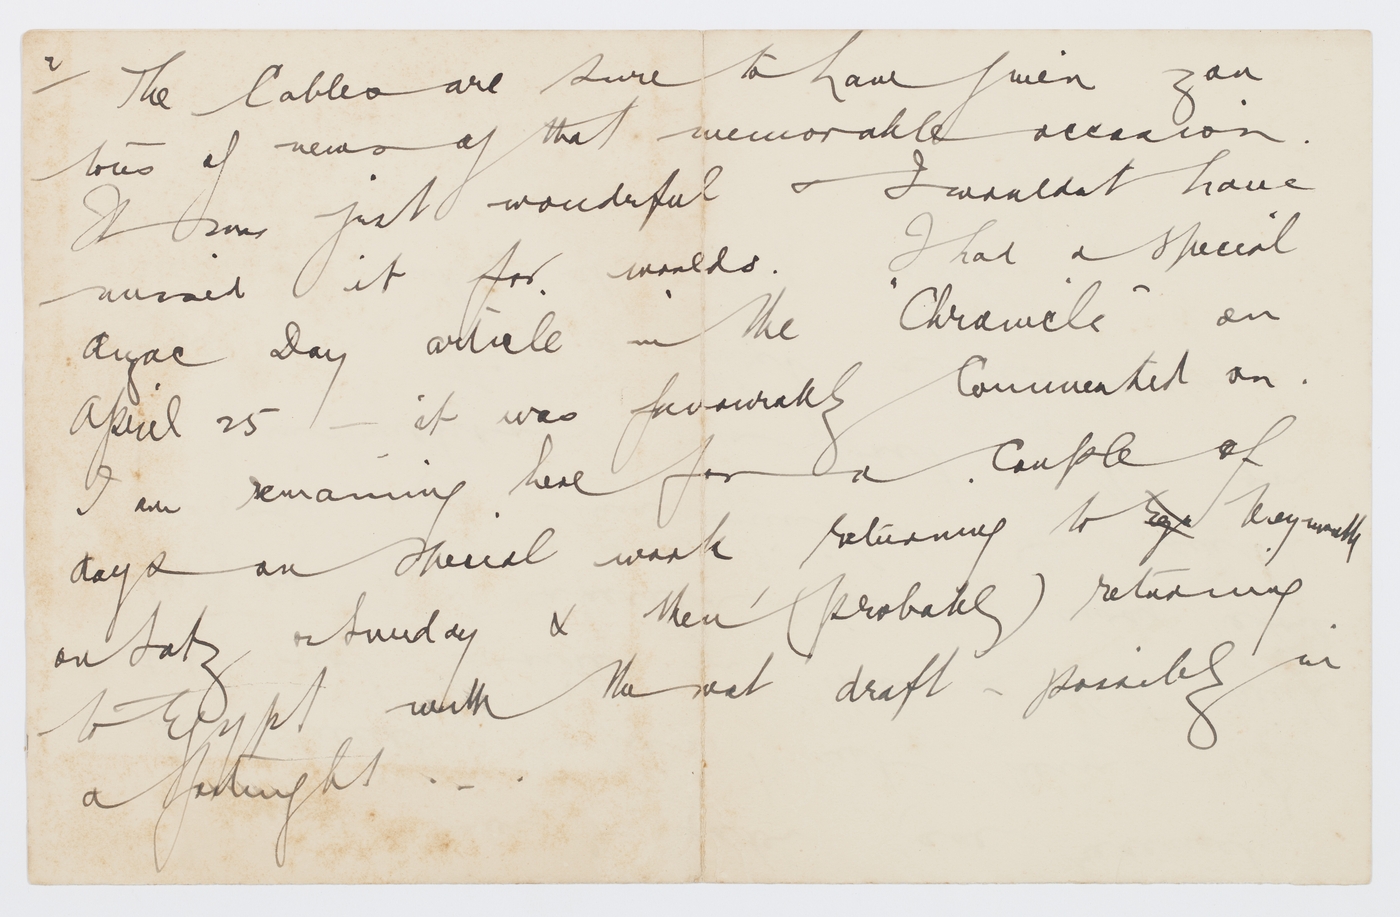 2/ The Cables are sure to have given you
tons of news of that memorable occasion.
It was just wonderful & I wouldnt have
missed it for worlds. I had a special
Anzac Day article in the "Chronicle" on
April 25 — it was favourably commented on.
I am remaining here for a couple of
days on special work returning to Weymouth
on Saty or Sunday & then (probably) returning
to Egypt with the next draft - possibly in
a fortnight . _ .